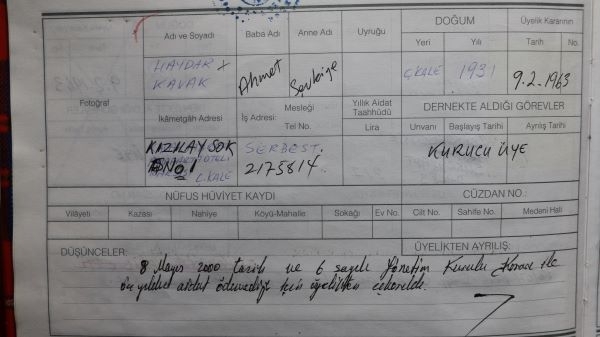 Adı ve Soyadı Baba Adı Anne Adı Uyruğu DOĞUM Üyelik Kararının
Yeri Yılı Tarih No.
HAYDAR KAVAK Ahmet Şevkiye Ç.KALE 1931 9.2.1963
Fotoğraf
İkâmetgâh Adresi Mesleği Yıllık Aidat Taahhüdü DERNEKTE ALDIĞI GÖREVLER
İş Adresi: Tel No. Lira Unvanı Başlayış Tarihi Ayrılış Tarihi
KIZILAY SOK SERBEST. KURUCU ÜYE
No 1 2175814
Ç.KALE
NÜFUS HÜVİYET KAYDI CÜZDAN NO.:
Vilâyeti Kazası Nahiye Köyü-Mahalle Sokağı Ev No. Cilt No. Sahife No. Medeni Hali
DÜŞÜNCELER: ÜYELİKTEN AYRILIŞ:
8 Mayıs 2000 tarih ve 6 sayılı Yönetim Kurulu Kararı ile
aidat ödemediği için üyelikten